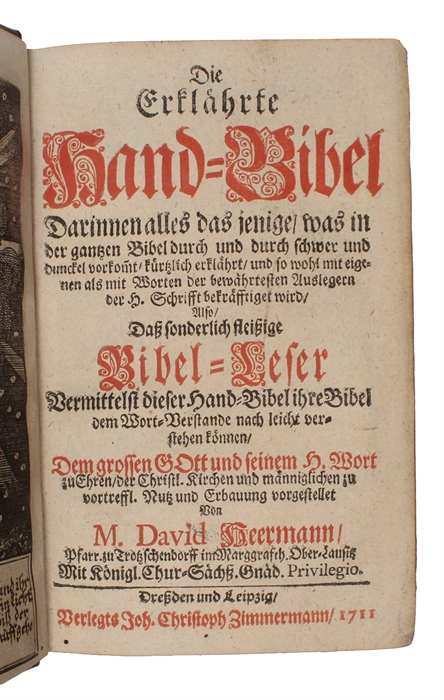 Die
Erklährte
Hand-Bibel
Darinnen alles das jenige/ was in
der gantzen Bibel durch und durch schwer und
dunckel vorkom̃t/ kürtzlich erklährt/ und so wohl mit eige-
nen als mit Worten der bewährtesten Auslegern
der H. Schrifft bekräfftiget wird/
Also/
Daß sonderlich fleißige
Bibel-Leser
Vermittelst dieser Hand-Bibel ihre Bibel
dem Wort-Verstande nach leicht ver-
stehen können/
Dem grossen GOtt und seinem H. Wort
zu Ehren/ der Christl. Kirchen und männiglichen zu
vortreffl. Nutz und Erbauung vorgestellet
Von
M. David Heermann/
Pfarr. zu Trotzschendorff im Marggrafth. Ober-Lausitz
Mit Königl. Chur-Sächß. Gnäd. Privilegio.
Dreßden und Leipzig/
Verlegts Joh. Christoph Zimmermann/ 1711